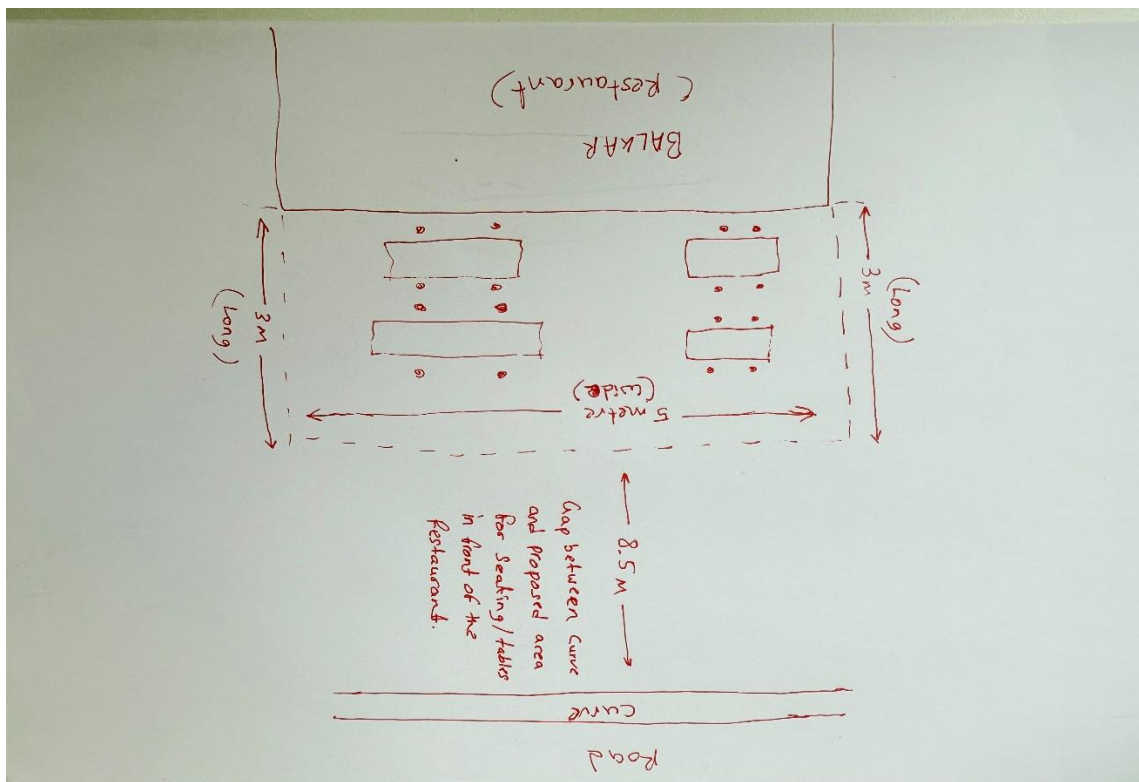 (Restaurant)
BALKAR
3M
(Long)
3M
(Long)
5 metre
(wide)
8.5 M
Gap between Curve
and proposed area
for seating/tables
in front of the
Restaurant.
Curve
Road